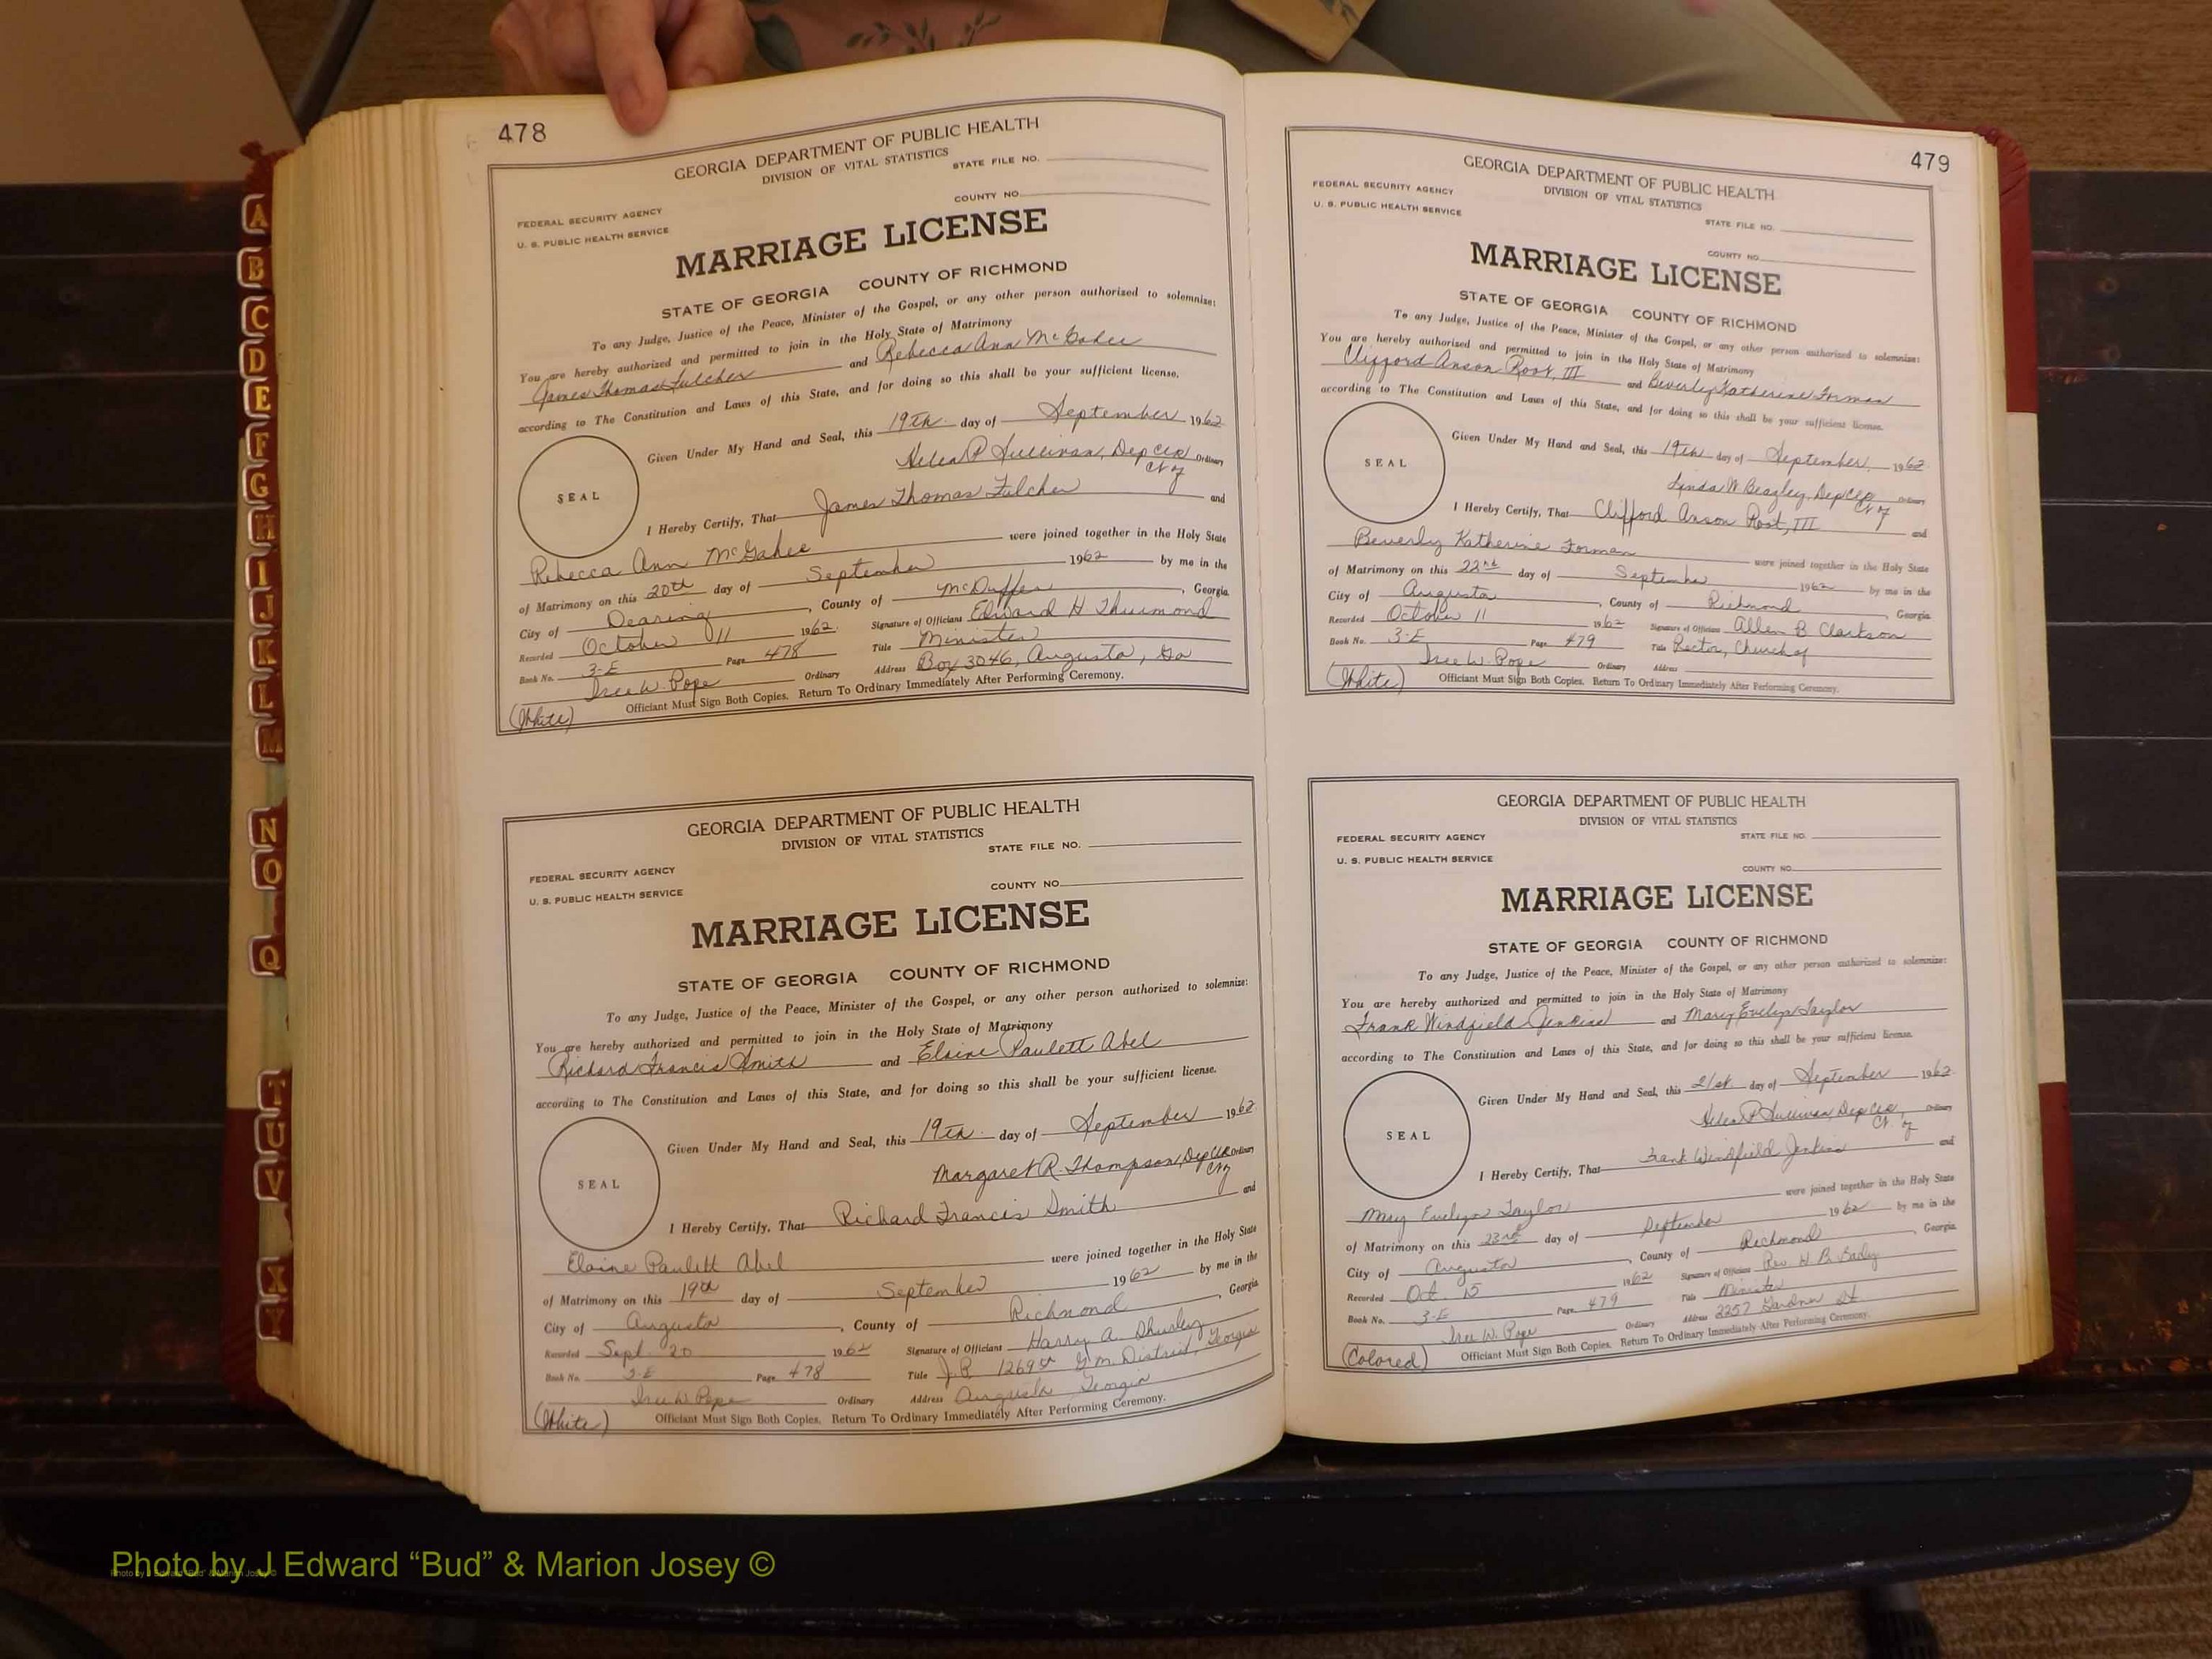 478
GEORGIA DEPARTMENT OF PUBLIC HEALTH
DIVISION OF VITAL STATISTICS
STATE FILE NO.
COUNTY NO.
FEDERAL SECURITY AGENCY
U. S. PUBLIC HEALTH SERVICE
MARRIAGE LICENSE
STATE OF GEORGIA COUNTY OF RICHMOND
To any Judge, Justice of the Peace, Minister of the Gospel, or any other person authorized to solemnize:
You are hereby authorized and permitted to join in the Holy State of Matrimony
James Thomas Fulcher and Rebecca Ann McGahee
according to The Constitution and Laws of this State, and for doing so this shall be your sufficient license.
Given Under My Hand and Seal, this 19th day of September 1962
Helen P Sullivan, Dep Clk Ordinary
Ct of
SEAL
I Hereby Certify, That James Thomas Fulcher and
Rebecca Ann McGahee were joined together in the Holy State
of Matrimony on this 20th day of September 1962 by me in the
City of Dearing, County of McDuffie, Georgia.
Recorded October 11 1962. Signature of Officiant Edward H Thurmond
Book No. 3-E Page 478 Title Minister
Iree W. Pope Ordinary Address Box 3046, Augusta, Ga
(White) Officiant Must Sign Both Copies. Return To Ordinary Immediately After Performing Ceremony.
GEORGIA DEPARTMENT OF PUBLIC HEALTH
DIVISION OF VITAL STATISTICS
STATE FILE NO.
FEDERAL SECURITY AGENCY
U. S. PUBLIC HEALTH SERVICE
COUNTY NO.
MARRIAGE LICENSE
STATE OF GEORGIA COUNTY OF RICHMOND
To any Judge, Justice of the Peace, Minister of the Gospel, or any other person authorized to solemnize:
You are hereby authorized and permitted to join in the Holy State of Matrimony
Richard Francis Smith and Elaine Paulett Abel
according to The Constitution and Laws of this State, and for doing so this shall be your sufficient license.
Given Under My Hand and Seal, this 19th day of September 1962
Margaret R. Thompson, Dep Clk Ordinary
Ct of
SEAL
I Hereby Certify, That Richard Francis Smith and
Elaine Paulett Abel were joined together in the Holy State
of Matrimony on this 19th day of September 1962 by me in the
City of Augusta, County of Richmond, Georgia
Recorded Sept. 20 1962 Signature of Officiant Harry A. Shurley
Book No. 3-E Page 478 Title J.P. 1269th G.M. District, Georgia
Iree W. Pope Ordinary Address Augusta Georgia
(White) Officiant Must Sign Both Copies. Return To Ordinary Immediately After Performing Ceremony.
479
GEORGIA DEPARTMENT OF PUBLIC HEALTH
DIVISION OF VITAL STATISTICS
FEDERAL SECURITY AGENCY
U. S. PUBLIC HEALTH SERVICE
STATE FILE NO.
COUNTY NO.
MARRIAGE LICENSE
STATE OF GEORGIA COUNTY OF RICHMOND
To any Judge, Justice of the Peace, Minister of the Gospel, or any other person authorized to solemnize:
You are hereby authorized and permitted to join in the Holy State of Matrimony
Clifford Anson Root, III and Beverly Katherine Forman
according to The Constitution and Laws of this State, and for doing so this shall be your sufficient license.
Given Under My Hand and Seal, this 19th day of September, 1962
Linda W Beazley, Dep Clk Ordinary
Ct of
SEAL
I Hereby Certify, That Clifford Anson Root, III and
Beverly Katherine Forman were joined together in the Holy State
of Matrimony on this 22nd day of September 1962 by me in the
City of Augusta, County of Richmond, Georgia
Recorded October 11 1962 Signature of Officiant Allen B Clarkson
Book No. 3-E Page 479 Title Rector, Church of
Iree W. Pope Ordinary Address
(White) Officiant Must Sign Both Copies. Return To Ordinary Immediately After Performing Ceremony.
GEORGIA DEPARTMENT OF PUBLIC HEALTH
DIVISION OF VITAL STATISTICS
FEDERAL SECURITY AGENCY STATE FILE NO.
U. S. PUBLIC HEALTH SERVICE
COUNTY NO.
MARRIAGE LICENSE
STATE OF GEORGIA COUNTY OF RICHMOND
To any Judge, Justice of the Peace, Minister of the Gospel, or any other person authorized to solemnize:
You are hereby authorized and permitted to join in the Holy State of Matrimony
Frank Windfield Jenkins and Mary Evelyn Taylor
according to The Constitution and Laws of this State, and for doing so this shall be your sufficient license.
Given Under My Hand and Seal, this 21st day of September 1962
Helen P Sullivan, Dep Clk, Ordinary
Ct. of
SEAL
I Hereby Certify, That Frank Windfield Jenkins and
Mary Evelyn Taylor were joined together in the Holy State
of Matrimony on this 23rd day of September 1962 by me in the
City of Augusta, County of Richmond, Georgia
Recorded Oct. 15 1962 Signature of Officiant Rev. H. B.
Book No. 3-E Page 479 Title Minister
Iree W. Pope Ordinary Address 2257 Gardner St
(Colored) Officiant Must Sign Both Copies. Return To Ordinary Immediately After Performing Ceremony.
A
B
C
D
E
F
G
H
I
J
K
L
M
N
O
Q
T
U
V
X
Y
Photo by J Edward “Bud” & Marion Josey ©
Photo by J Edward "Bud" & Marion Josey ©